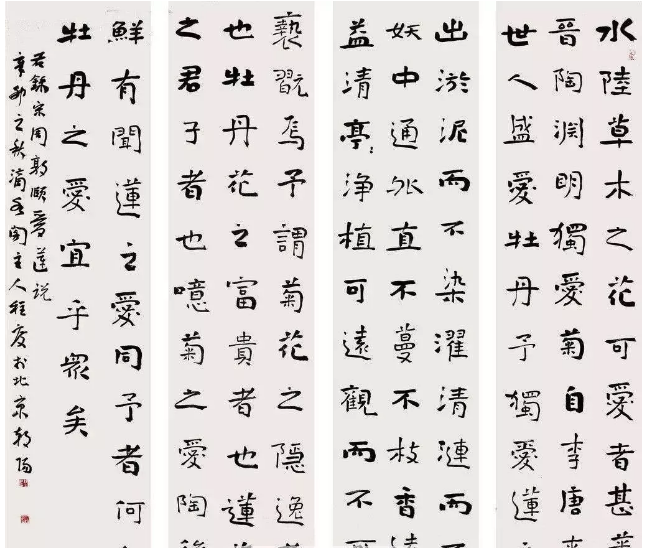 水陸草木之花可愛者甚
晉陶淵明獨愛菊自李唐
世人盛愛牡丹予獨愛蓮
出淤泥而不染濯清漣而
妖中通外直不蔓不枝香
益清亭〻淨植可遠觀而不可
褻翫焉予謂菊花之隱逸
也牡丹花之富貴者也蓮
之君子者也噫菊之愛陶後
鮮有聞蓮之愛同予者何
牡丹之愛宜乎眾矣
右錄宋周敦頤愛蓮説
辛卯之秋主人程度於北京朝陽